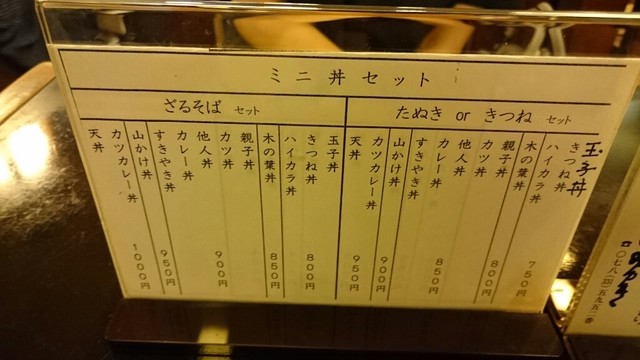 ミニ丼セット
たぬき or きつね セット
玉子丼
きつね丼
ハイカラ丼
木の葉丼
750円
親子丼
カツ丼
800円
他人丼
カレー丼
850円
すきやき丼
山かけ丼
カツカレー丼
900円
天丼
950円
ざるそば セット
玉子丼
きつね丼
800円
ハイカラ丼
木の葉丼
850円
親子丼
カツ丼
他人丼
900円
カレー丼
すきやき丼
950円
山かけ丼
カツカレー丼
1000円
天丼